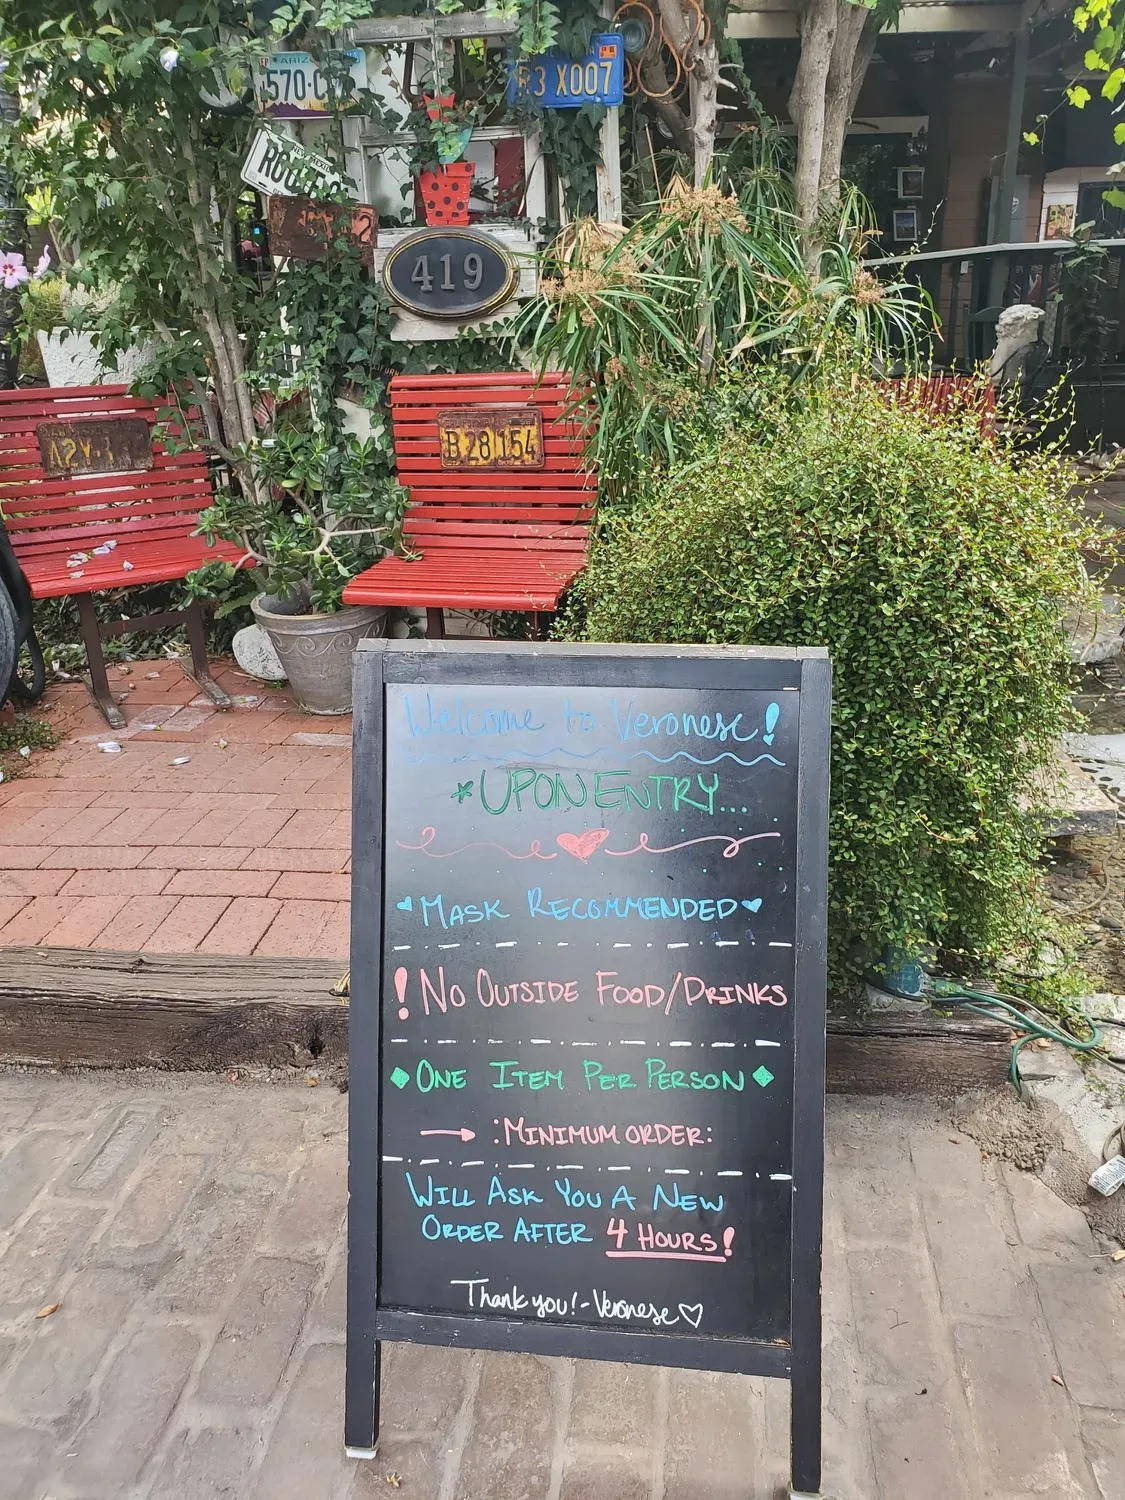 ARIZ
570-C
3 X007
419
B 28 154
Welcome to Veronese!
*UPON ENTRY...
MASK RECOMMENDED
! NO OUTSIDE FOOD/DRINKS
ONE ITEM PER PERSON
:MINIMUM ORDER:
WILL ASK YOU A NEW
ORDER AFTER 4 HOURS!
Thank you! - Veronese